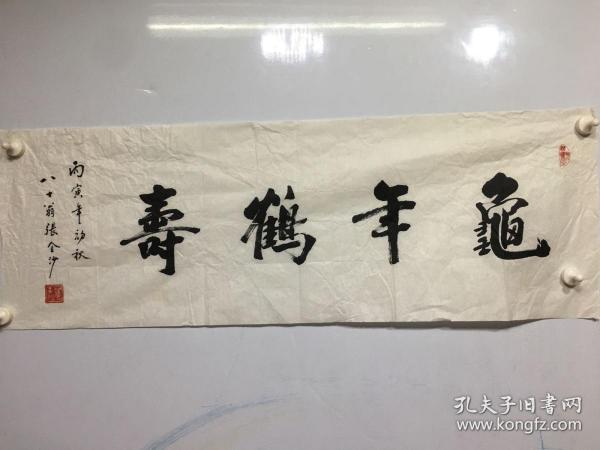 龜年鶴壽
丙寅年初秋
八十翁張金沙
孔夫子旧書网
www.kongfz.com